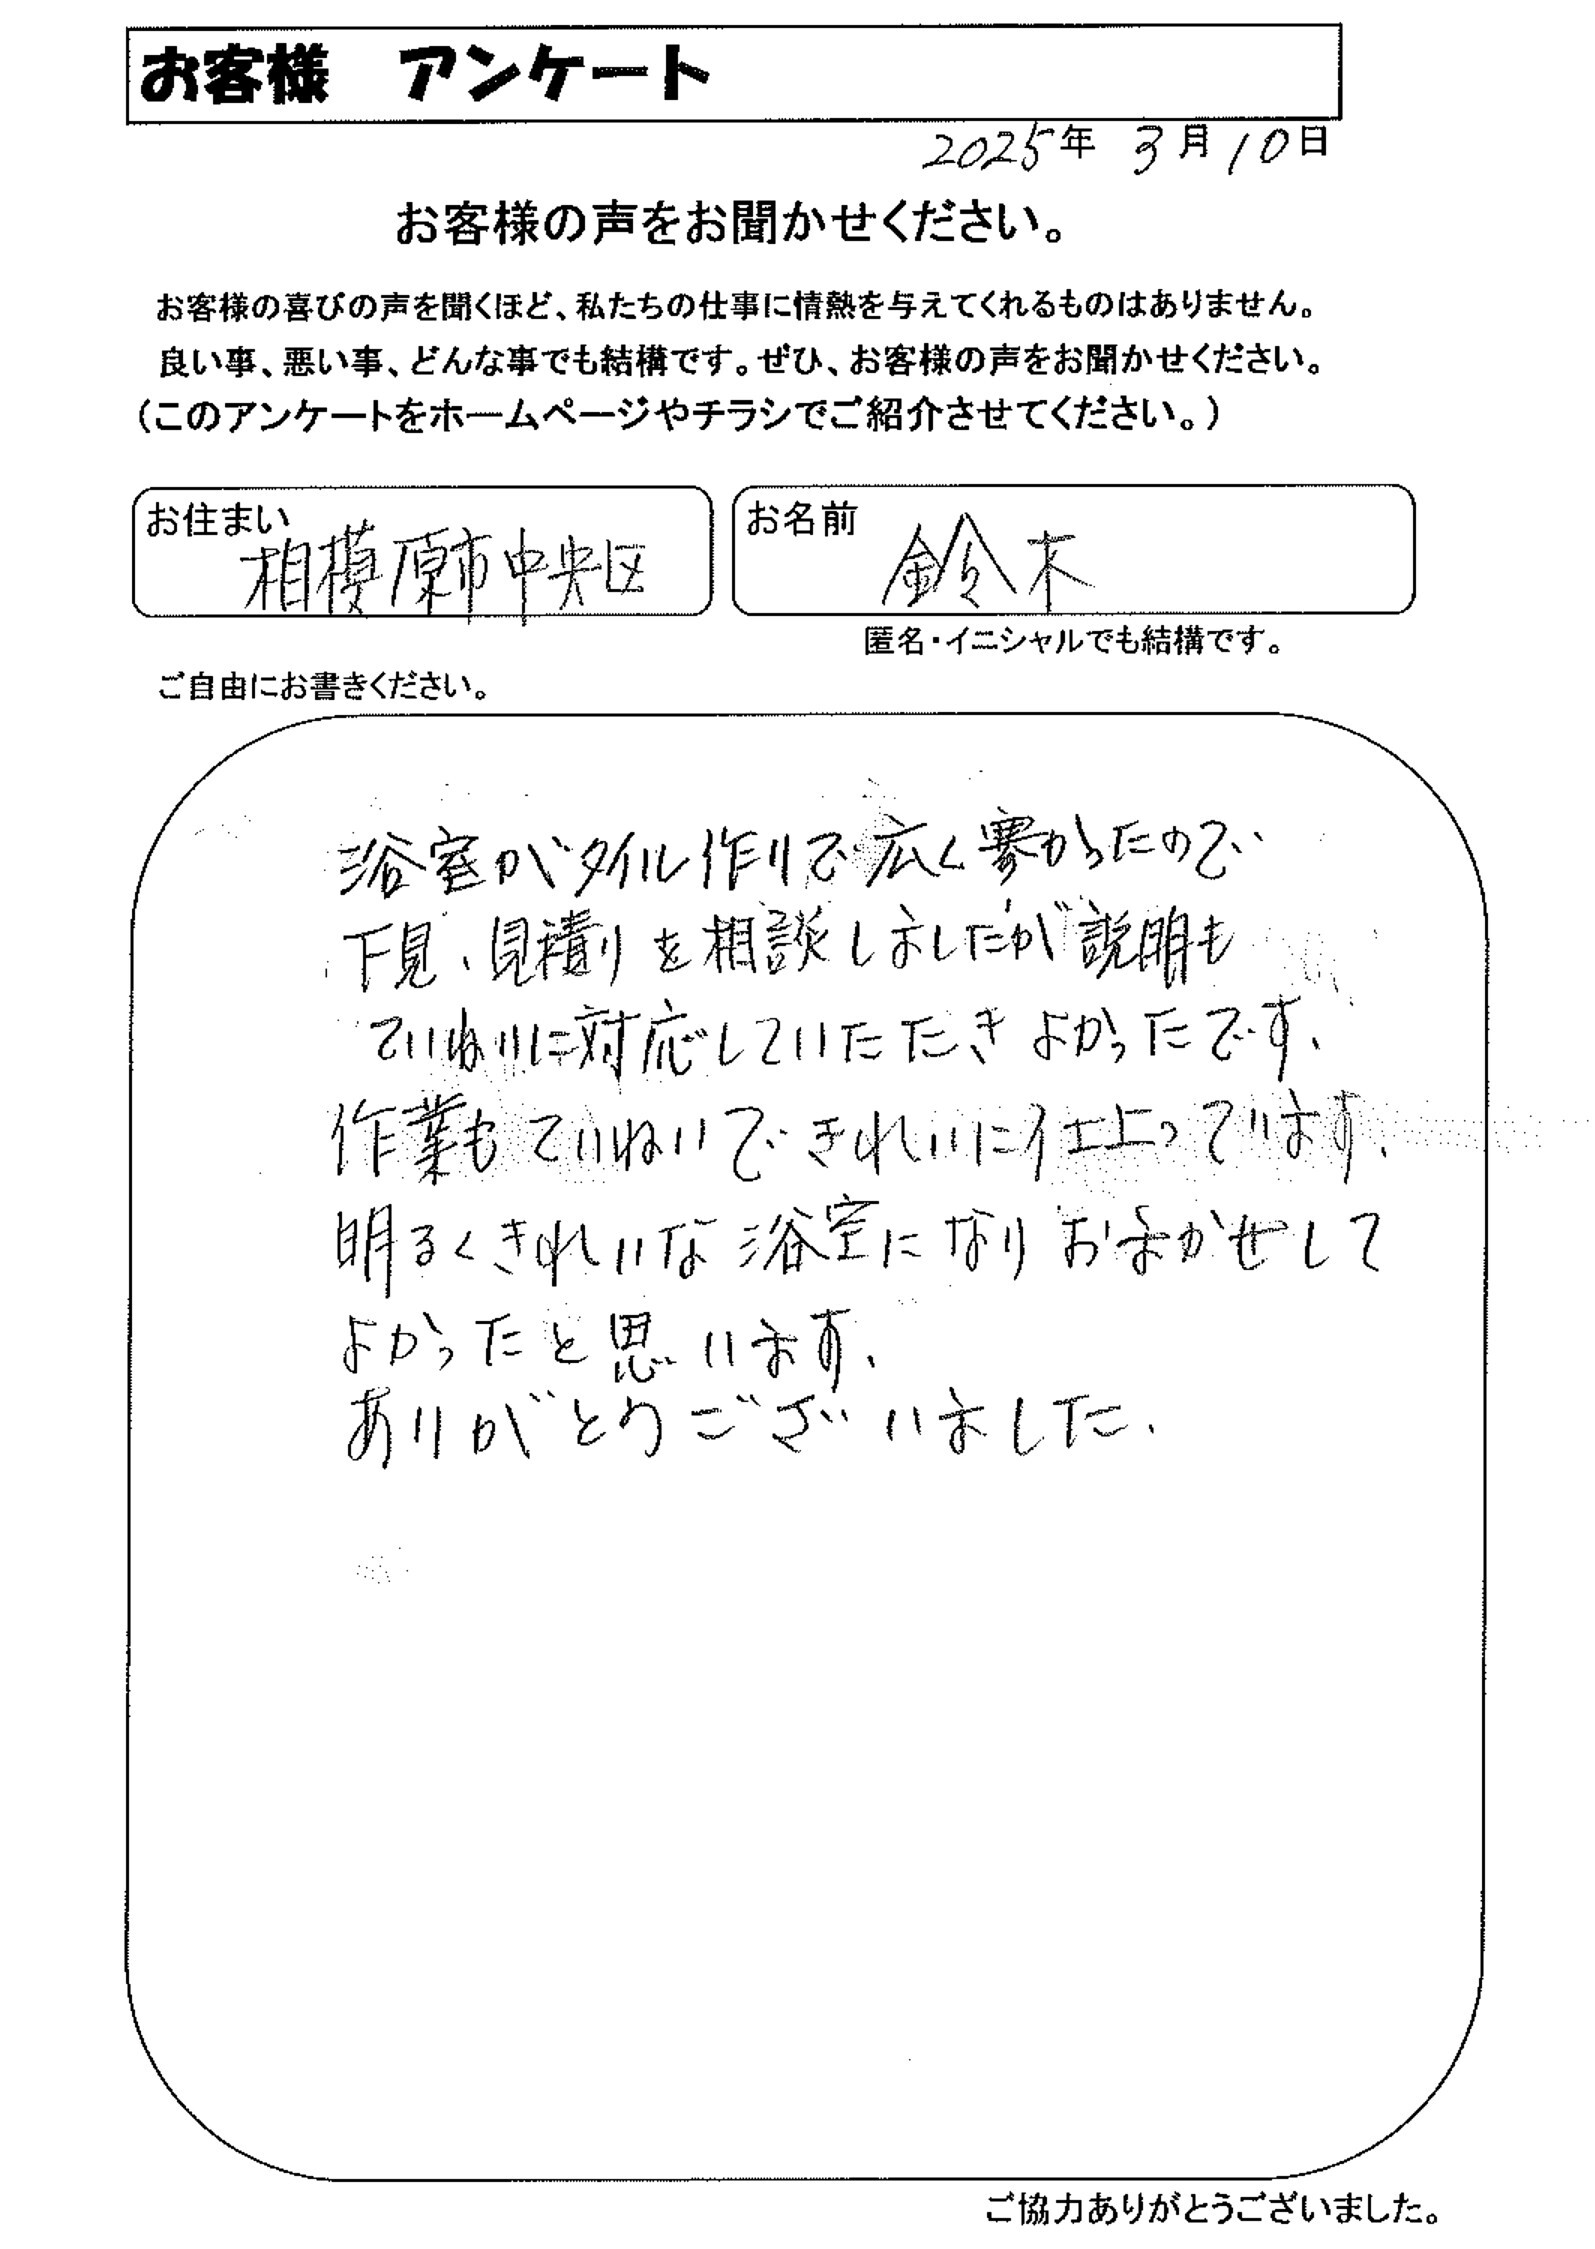 お客様 アンケート
2025年 3月10日
お客様の声をお聞かせください。
お客様の喜びの声を聞くほど、私たちの仕事に情熱を与えてくれるものはありません。
良い事、悪い事、どんな事でも結構です。ぜひ、お客様の声をお聞かせください。
(このアンケートをホームページやチラシでご紹介させてください。)
お住まい 相模原市中央区
お名前 鈴木
匿名・イニシャルでも結構です。
ご自由にお書きください。
浴室がタイル作りで広く寒かったので
下見、見積りを相談しましたが説明も
ていねいに対応していただきよかったです、
作業もていねいできれいに仕上っています、
明るくきれいな浴室になりおまかせして
よかったと思います、
ありがとうございました、
ご協力ありがとうございました。